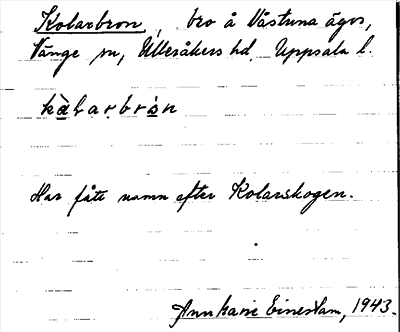 Kolarbron, bro å Västuna ägor,
Vänge sn, Ulleråkers hd. Uppsala l.
kàlarbròn
Har fått namn efter Kolarskogen.
Ann Marie Einerstam, 1943.